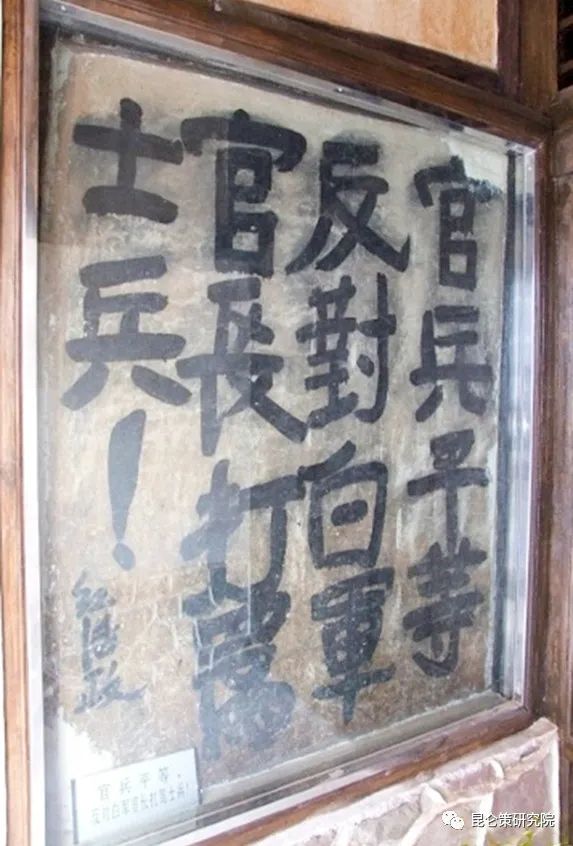 官兵平等
反對白軍
官長打罵
士兵！
红
政
官兵平等，
反对白军官长打骂士兵！
昆仑策研究院